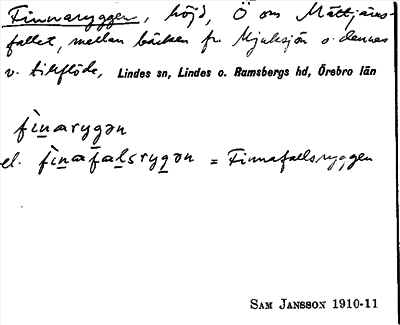 Finnaryggen, höjd, Ö om Mättjärns-
fallet, mellan bäcken fr. Mjuksjön o. dennes
v. tillflöde, Lindes sn, Lindes o. Ramsbergs hd, Örebro län
fìnarygən
el. fìnafalsrygən = Finnafallsryggen
SAM JANSSON 1910-11